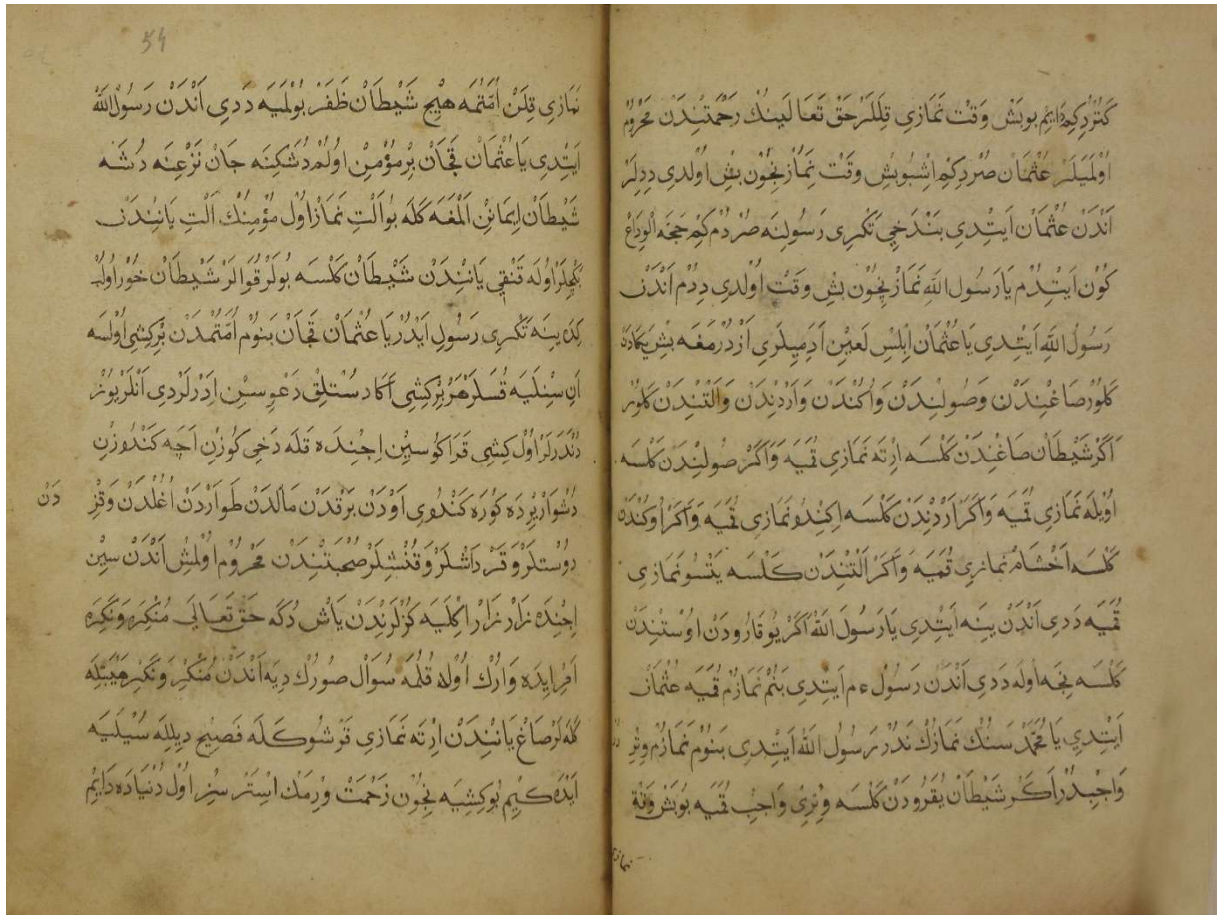 كتردكم دايم بوبش وقت نمازى قللر حق تعالينك رحمتندن محروم
اولميلر عثمان صردكم اشبوبش وقت نماز نجون بش اولدى ددلر
اندن عثمان ايتدى بندخى تكرى رسولنه صردم كم حجة الوداع
كون ايتدم يارسول الله نماز نجون بش وقت اولدى ددم اندن
رسول الله ايتدى ياعثمان ابلس لعين ادميلرى ازدرمغه بش يكادن
كلور صاغندن وصولندن واكندن واردندن والتندن كلور
اكر شيطان صاغندن كلسه ارته نمازى قميه واكر صولندن كلسه
اويله نمازى قميه واكر اردندن كلسه اكندو نمازى قميه واكر اوكندن
كلسه اخشام نمازى قميه واكر التندن كلسه يتسو نمازى
قميه ددى اندن ينه ايتدى يارسول الله اكر يوقارودن اوستندن
كلسه نجه اوله ددى اندن رسول ءم ايتدى بنم نمازم قميه عثمان
ايتدى يا محمد سنك نمازك ندر رسول الله ايتدى بنوم نمازم وتر
واجبدر اكر شيطان يقرودن كلسه وترى واجب قميه بوبش وقت
نمازى
54
نمازى قلن امتمه هيج شيطان ظفر بولميه ددى اندن رسول الله
ايتدى ياعثمان قجان بر مؤمن اولم دشكنه جان نزعنه دشه
شيطان ايمانن المغه كله بوالت نماز اول مؤمنك الت ياننדن
بكجلر اوله قنقى يانندن شيطان كلسه بولر قوالر شيطان خور اولب
كده ينه تكرى رسولى ايدر ياعثمان قجان بنوم امتمدن بركشى اولسه
ان سنليه قسلر هر بركشى اكا دستلق دعوسين ادرلردى انلر يوز
دندرلر اول كشى قراكوسين اجنده قله دخى كوزن اجه كندوزن
دشوار يرده كوره كندوى اودن برقدن مالدن طواردن اغلدن وقز
دن
دوستلر وقرداشلر وقنشلر صحبتندن محروم اولمش اندن سين
اجنده زار زار اكليه كزلرندن ياش دكه حق تعالى منكره ونكره
امر ايده وارك اول قلمه سوال صورك ديه اندن منكر ونكر هيبتله
كله لر صاغ يانندن ارته نمازى قرشو كله فصيح ديلله سيليه
ايده كيم بوكشيه نجون زحمت ورمك استرسز اول دنياده دايم